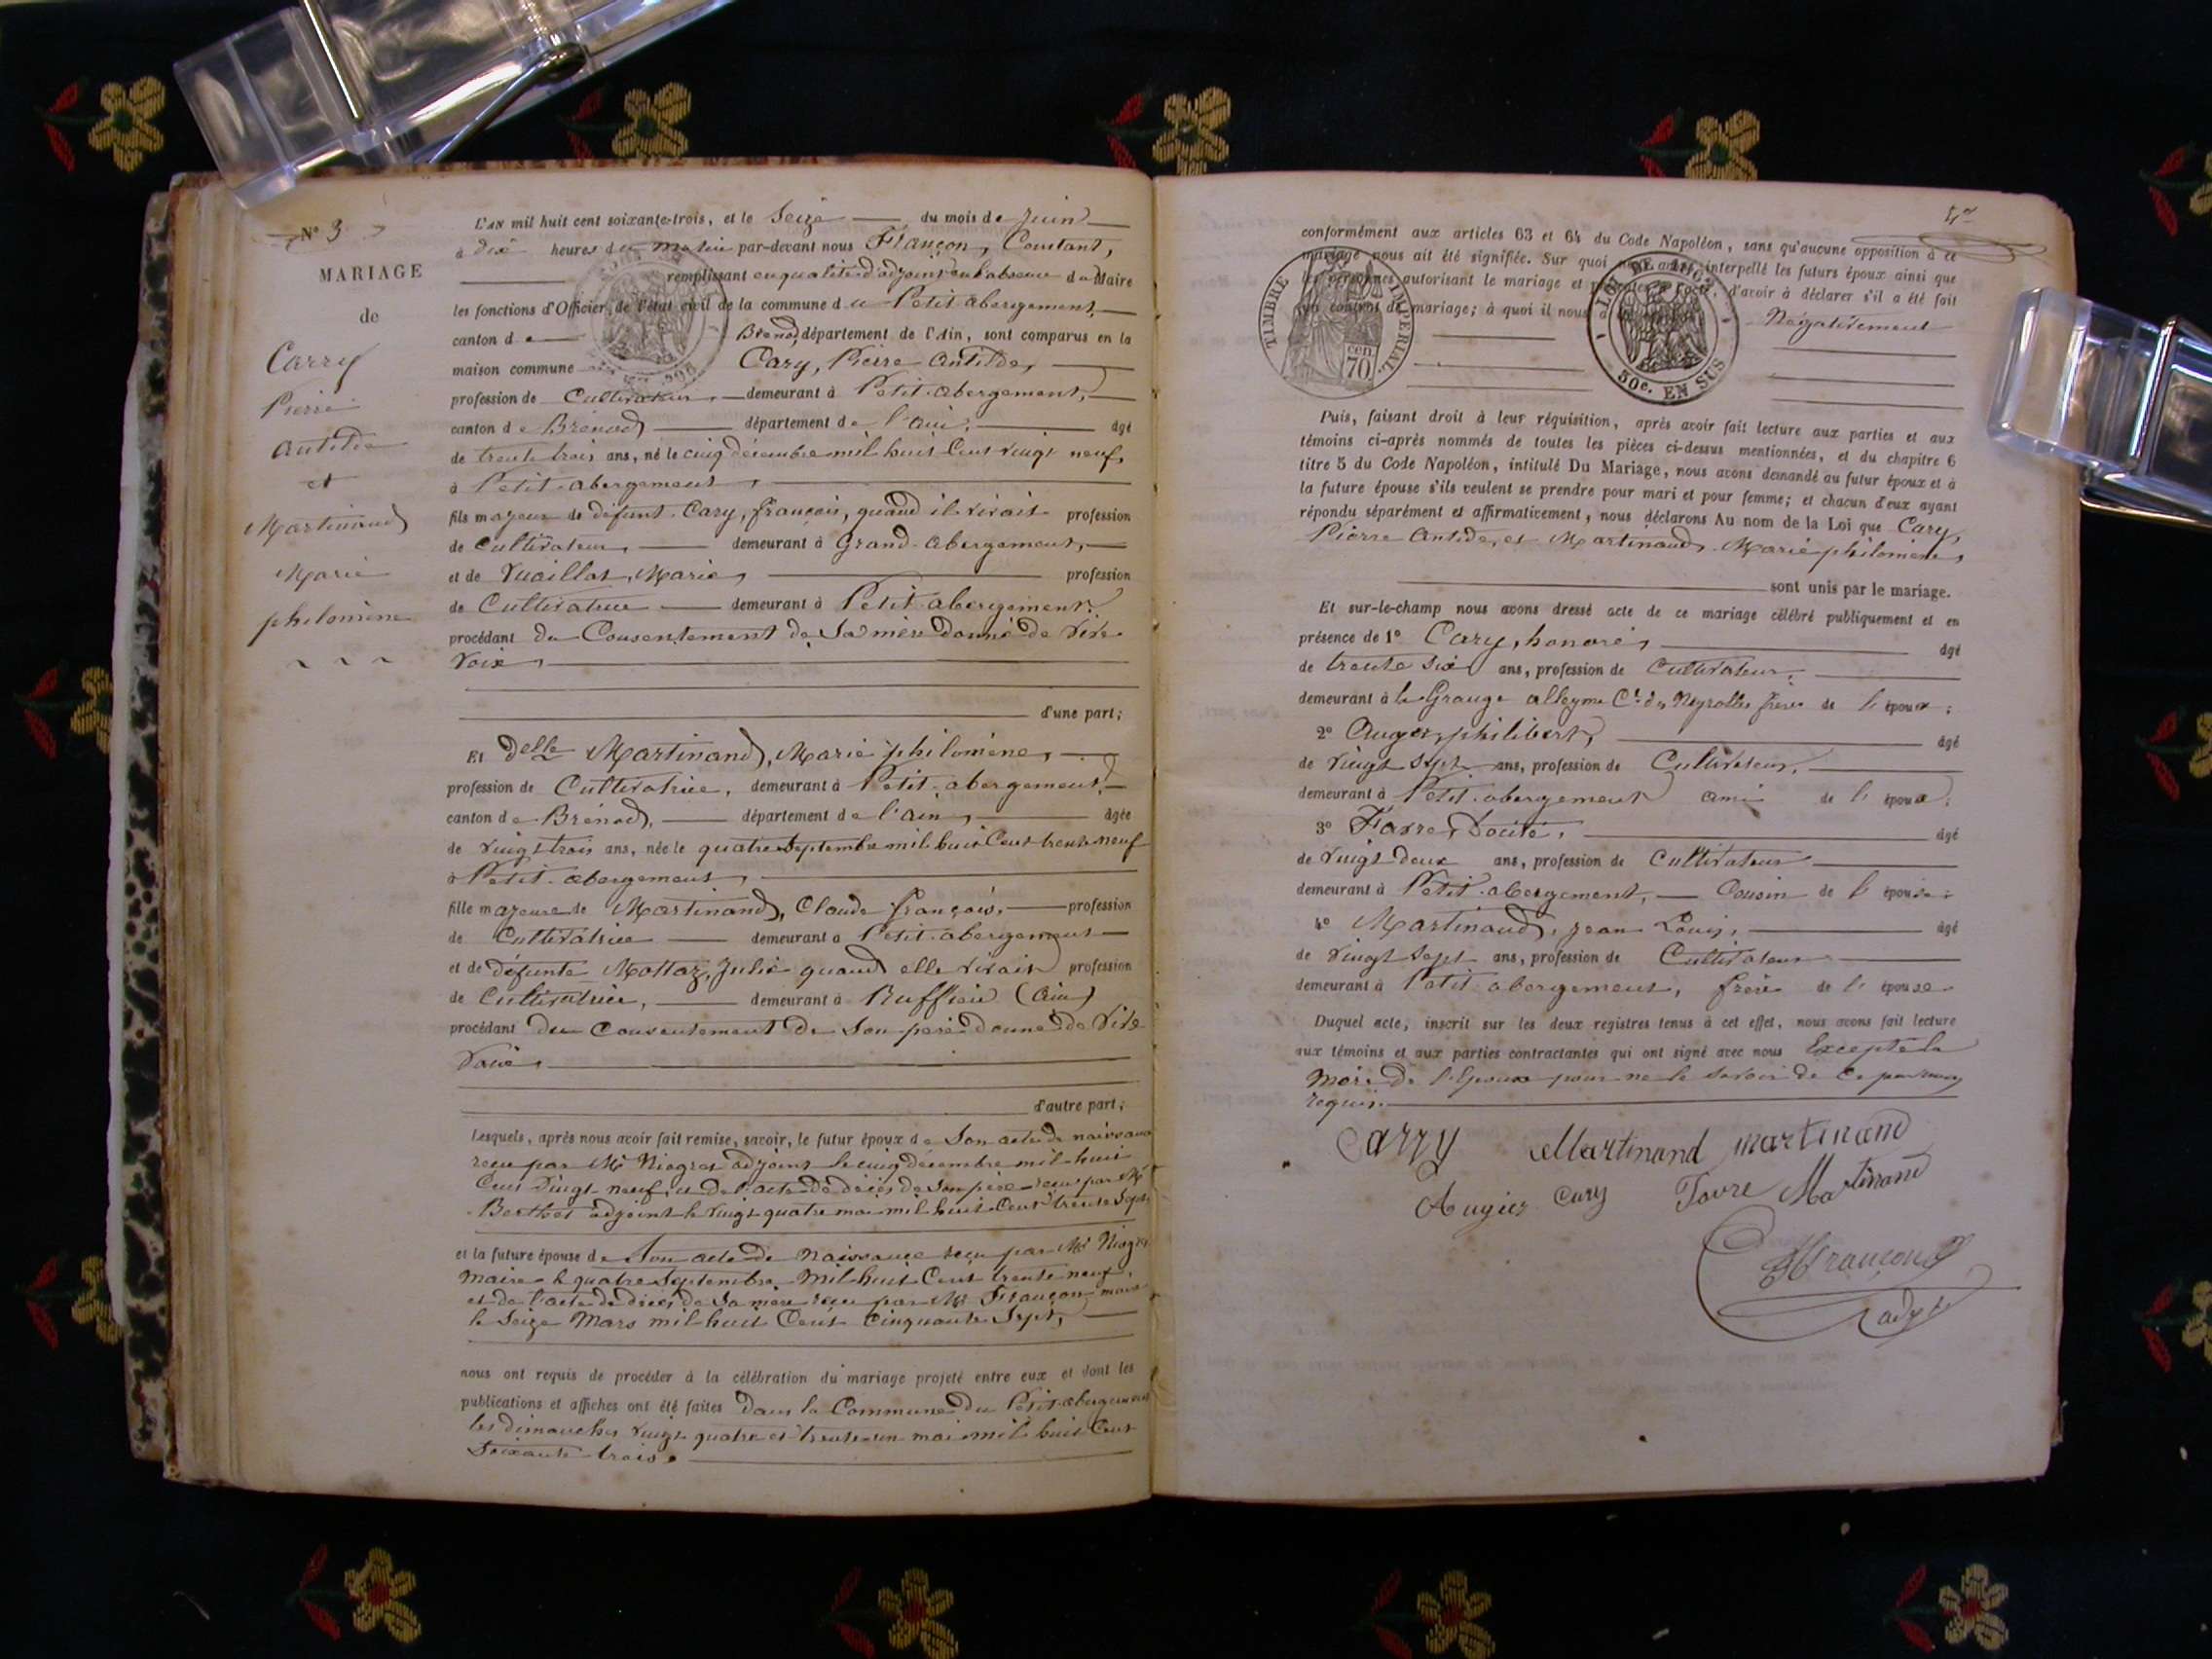 N° 3
MARIAGE
de
Carry
Pierre
Antide
et
Martinand
Marie
philomène
L'AN mil huit cent soixante-trois, et le Seize du mois de juin
à dix heures du matin par-devant nous Françon, Constant,
remplissant en qualité d'adjoint en l'absence du Maire
les fonctions d'Officier de l'état civil de la commune du Petit abergement
canton de Brenod, département de l'Ain, sont comparus en la
maison commune Cary, Pierre Antide,
profession de Cultivateur, demeurant à Petit-abergement,
canton de Brénod département de l'ain, âgé
de trente trois ans, né le cinq décembre mil huit Cent vingt neuf,
à Petit-abergement,
fils majeur de défunt Cary, françois, quand il vivait profession
de Cultivateur, demeurant à Grand-abergement,
et de Vuaillat, Marie, profession
de Cultivatrice demeurant à Petit abergement
procédant du Consentement de Sa mère donné de vive
voix,
d'une part;
Et delle Martinand, Marie philomène,
profession de Cultivatrice, demeurant à Petit-abergement,
canton de Brénod, département de l'ain, âgée
de vingt trois ans, née le quatre Septembre mil huit Cent trente neuf
à Petit-abergement,
fille majeure de Martinand, Claude françois, profession
de Cultivatrice demeurant à Petit-abergement
et de défunte Mottaz, Julie quand elle vivait profession
de Cultivatrice, demeurant à Ruffieu (ain)
procédant du Consentement de Son père donné de vive
voix,
d'autre part;
Lesquels, après nous avoir fait remise, savoir, le futur époux de Son acte de naissance
reçu par Mr Niogret adjoint le cinq décembre mil huit
Cent vingt-neuf, et de l'acte de décès de Son père reçu par Mr
Berthet adjoint le vingt quatre mai mil huit Cent trente Sept
et la future épouse de Son acte de Naissance reçu par Mr Niogret
maire le quatre Septembre Mil huit Cent trente neuf,
et de l'acte de décès de Sa mère reçu par Mr Françon maire
le Seize Mars mil huit Cent Cinquante Sept,
nous ont requis de procéder à la célébration du mariage projeté entre eux et dont les
publications et affiches ont été faites dans la Commune du Petit-abergement
les dimanches vingt quatre et trente-un mai mil huit Cent
Soixante-trois.
conformément aux articles 63 et 64 du Code Napoléon, sans qu'aucune opposition à ce
mariage nous ait été signifiée. Sur quoi nous avons interpellé les futurs époux ainsi que
les personnes autorisant le mariage et d'avoir à déclarer s'il a été fait
un contrat de mariage; à quoi il nous a Négativement
TIMBRE IMPERIAL
cen. 70
50c. EN SUS
Puis, faisant droit à leur réquisition, après avoir fait lecture aux parties et aux
témoins ci-après nommés de toutes les pièces ci-dessus mentionnées, et du chapitre 6
titre 5 du Code Napoléon, intitulé Du Mariage, nous avons demandé au futur époux et à
la future épouse s'ils veulent se prendre pour mari et pour femme; et chacun d'eux ayant
répondu séparément et affirmativement, nous déclarons Au nom de la Loi que Cary,
Pierre Antide, et Martinand, Marie philomène,
sont unis par le mariage.
Et sur-le-champ nous avons dressé acte de ce mariage célébré publiquement et en
présence de 1° Cary, honoré, âgé
de trente Six ans, profession de Cultivateur,
demeurant à la Grange alleyme Cne des Neyrolles frère de l'époux;
2° Auger, philibert, âgé
de vingt sept ans, profession de Cultivateur,
demeurant à Petit-abergement ami de l'époux;
3° Favre, Doité, âgé
de vingt-deux ans, profession de Cultivateur
demeurant à Petit-abergement, Cousin de l'épouse;
4° Martinand, jean Louis, âgé
de vingt sept ans, profession de Cultivateur
demeurant à Petit abergement, frère de l'épouse
Duquel acte, inscrit sur les deux registres tenus à cet effet, nous avons fait lecture
aux témoins et aux parties contractantes qui ont signé avec nous Excepté la
Mère de l'Epoux pour ne le Savoir de Ce par nous
requis.
Carry Martinand martinand
Augier Cary Favre Martinand
Françon
adjt